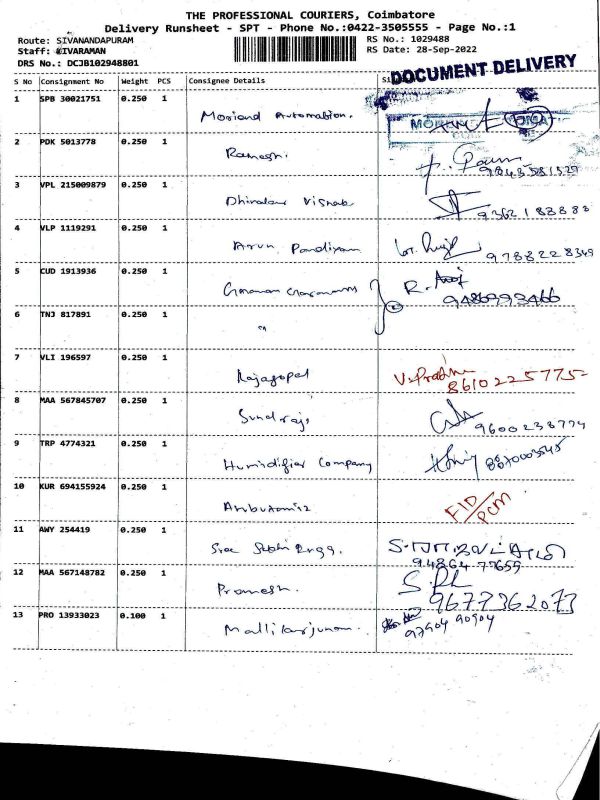 THE PROFESSIONAL COURIERS, Coimbatore
Delivery Runsheet - SPT - Phone No.:0422-3505555 - Page No.:1
Route: SIVANANDAPURAM RS No.: 1029488
Staff: SIVARAMAN RS Date: 28-Sep-2022
DRS No.: DCJB102948801
DOCUMENT DELIVERY
S No Consignment No Weight PCS Consignee Details
1 SPB 30021751 0.250 1 Automation.
2 PDK 5013778 0.250 1 Ramesh.
3 VPL 215009879 0.250 1 9362188888
4 VLP 1119291 0.250 1 Arun Pandiyan 9788228349
5 CUD 1913936 0.250 1 R. 9486993466
6 TNJ 817891 0.250 1 "
7 VLI 196597 0.250 1 Rajagopal 8610225775
8 MAA 567845707 0.250 1 Sundraj 9600238774
9 TRP 4774321 0.250 1 Humidifier Company
10 KUR 694155924 0.250 1
11 AWY 254419 0.250 1 Sree 94864 77655
12 MAA 567148782 0.250 1 Pramesh. 9677362073
13 PRO 13933023 0.100 1 Mallikarjunan. 97904 90904